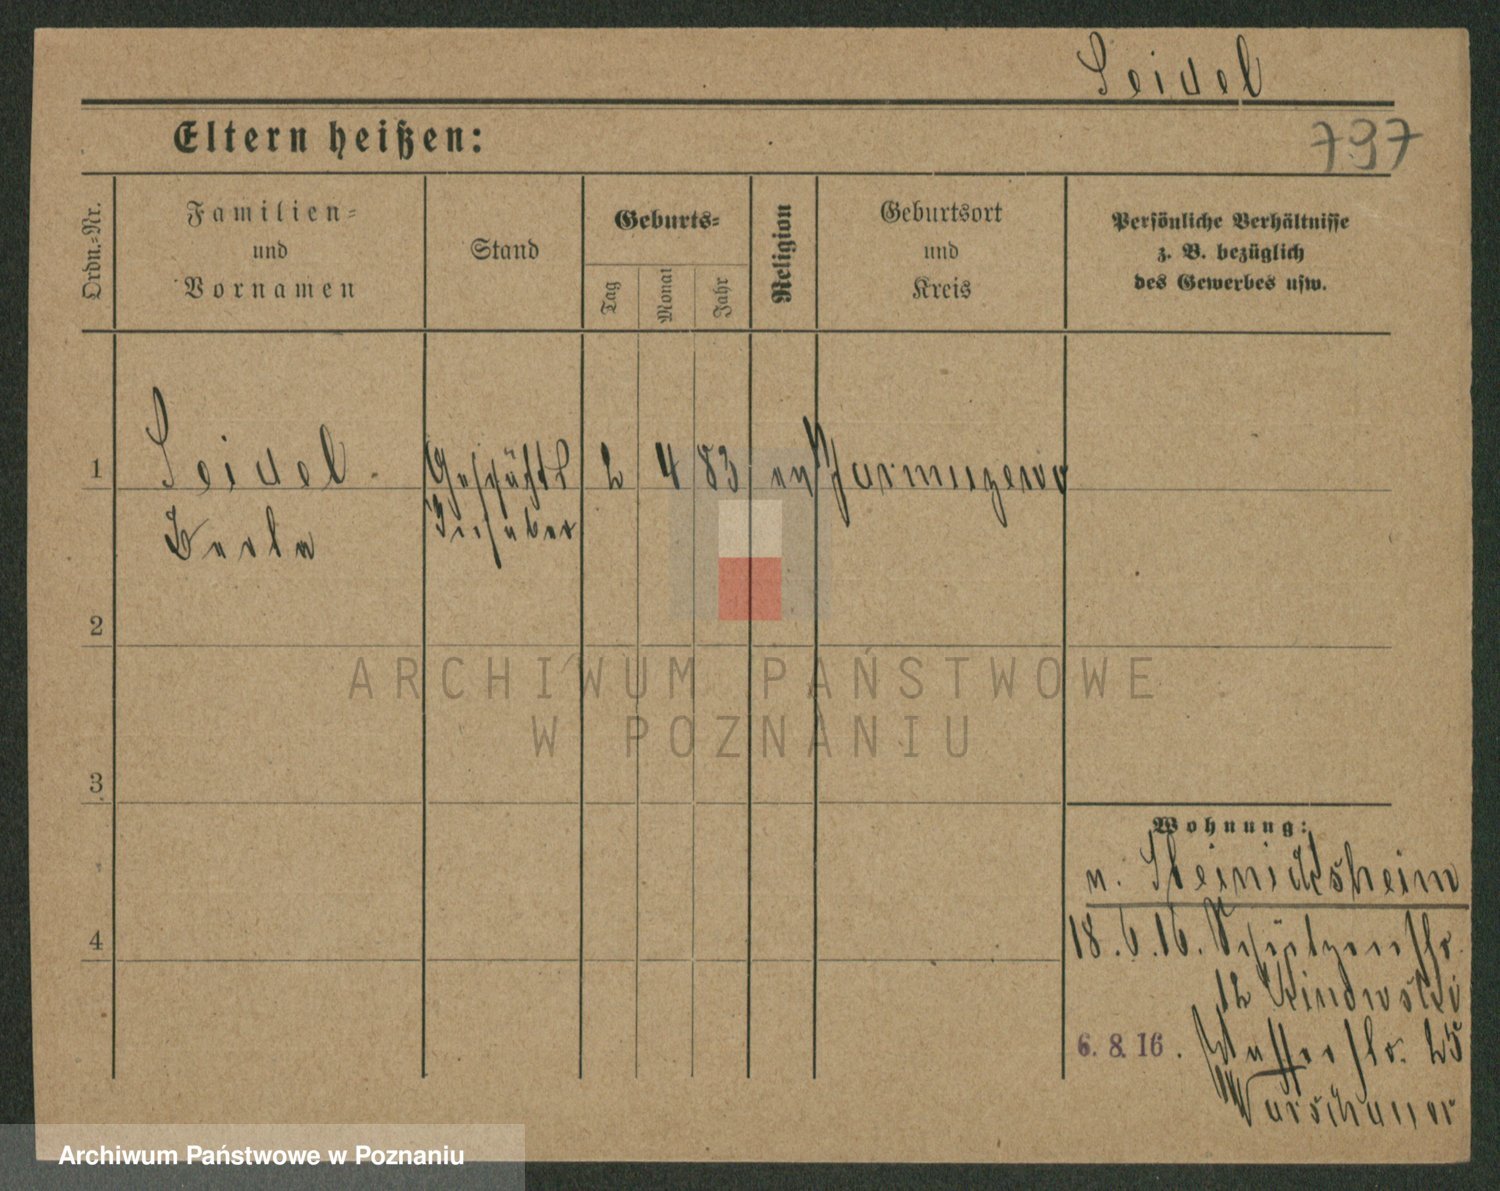 Seidel
Eltern heißen:
797
Ordn.-Nr.
Familien-
und
Vornamen
Stand
Geburts-
Tag
Monat
Jahr
Religion
Geburtsort
und
Kreis
Persönliche Verhältnisse
z. B. bezüglich
des Gewerbes usw.
1
Seidel
Geschäfts
2 4 83
ev
Inhaber
2
ARCHIWUM PAŃSTWOWE
W POZNANIU
3
Wohnung:
n. Steinicksheim
4
18.6.16. Schützenstr.
12
6. 8. 16. 25
Warschauer
Archiwum Państwowe w Poznaniu